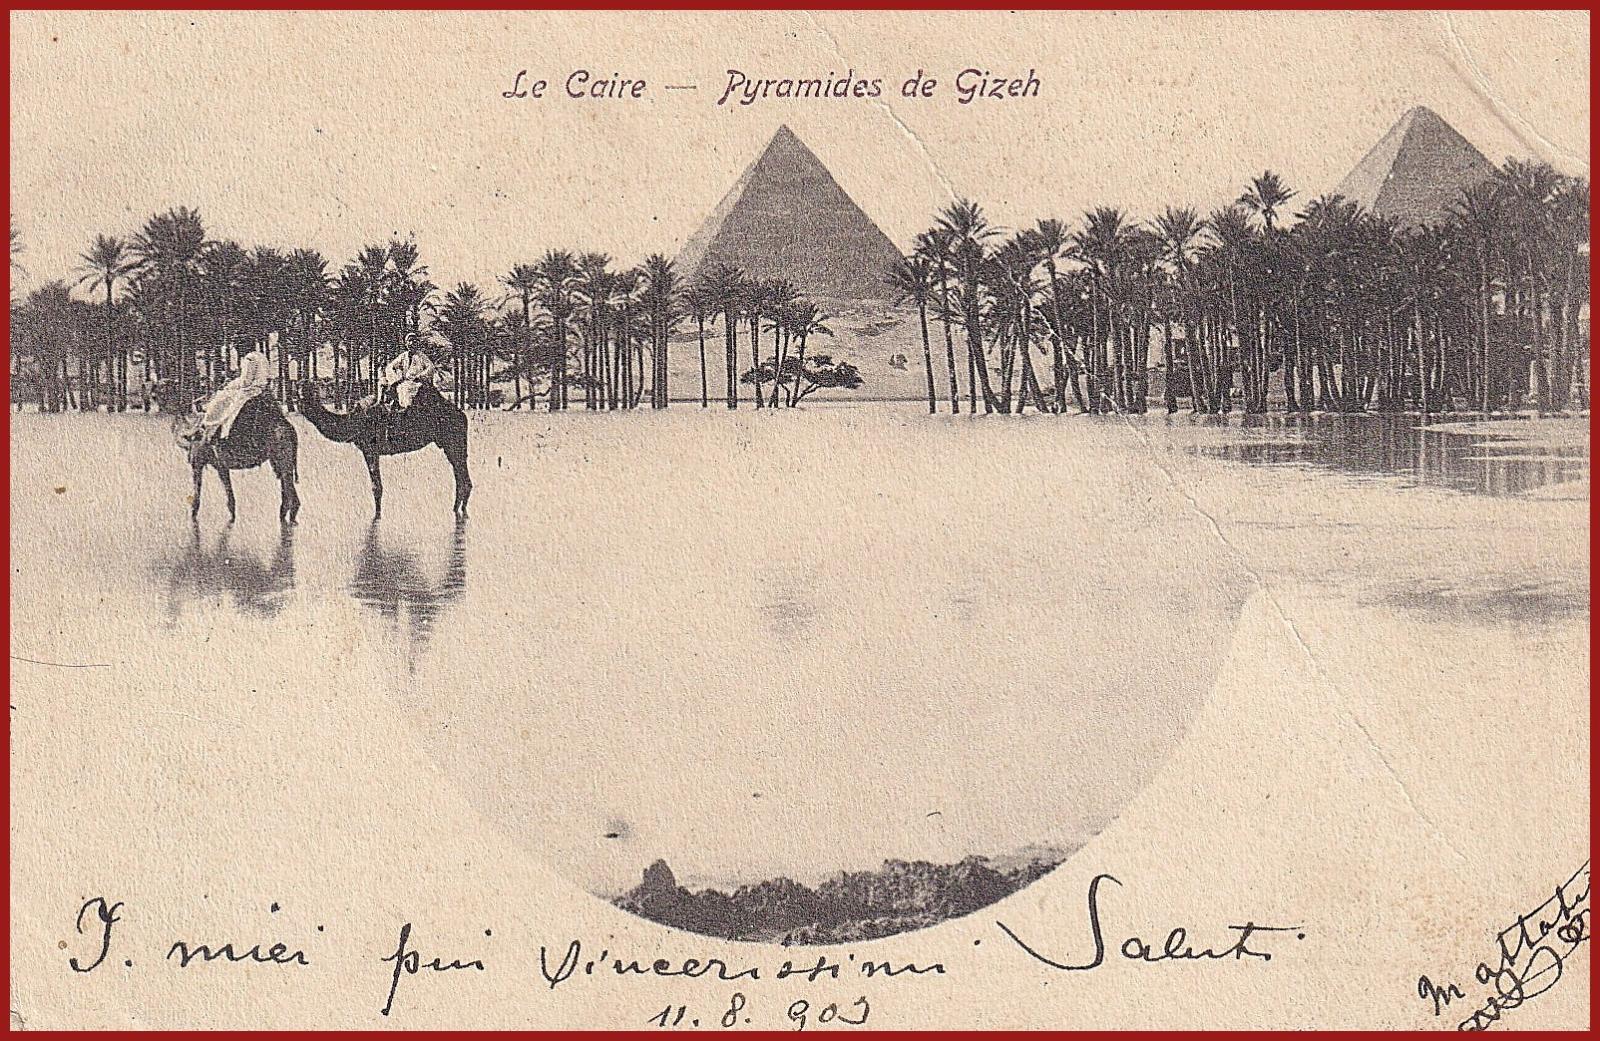 Le Caire — Pyramides de Gizeh
I. miei piu sincerissimi Saluti
11.8.903